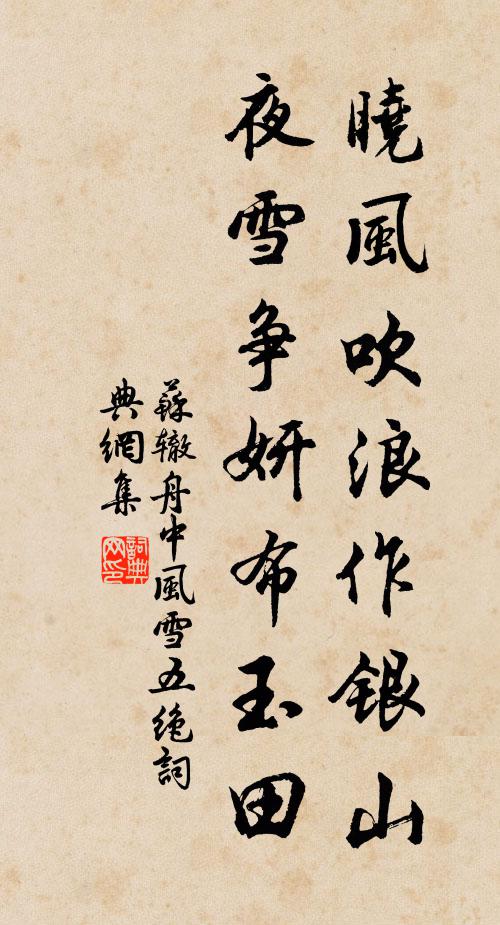 曉風吹浪作銀山
夜雪争妍布玉田
蘇轍舟中風雪五絶詞
典網集
詞典
网印